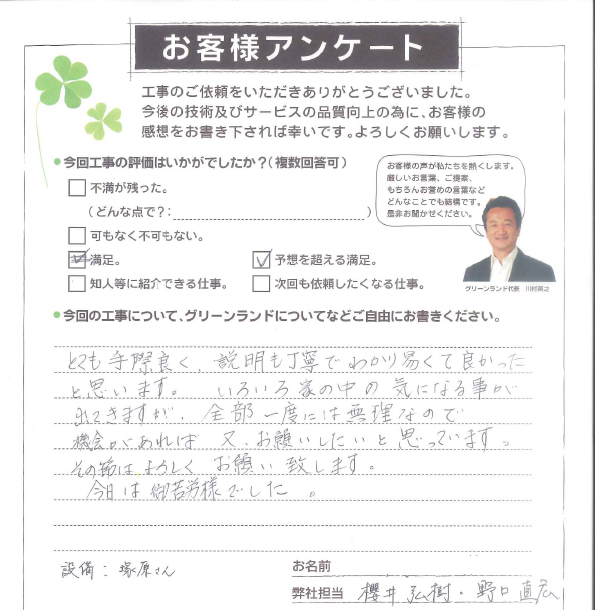 お客様アンケート
工事のご依頼をいただきありがとうございました。
今後の技術及びサービスの品質向上の為に、お客様の
感想をお書き下されば幸いです。よろしくお願いします。
今回工事の評価はいかがでしたか?(複数回答可)
不満が残った。
(どんな点で?: )
可もなく不可もない。
満足。
予想を超える満足。
知人等に紹介できる仕事。
次回も依頼したくなる仕事。
お客様の声が私たちを熱くします。
厳しいお言葉、ご提案、
もちろんお誉めの言葉など
どんなことでも結構です。
是非お聞かせください。
グリーンランド代表 川村英之
今回の工事について、グリーンランドについてなどご自由にお書きください。
とても手際良く、説明も丁寧でわかり易くて良かった
と思います。いろいろ家の中の気になる事が
出てきますが、全部一度には無理なので
機会があれば又、お願いしたいと思っています。
その節はよろしくお願い致します。
今日は御苦労様でした。
設備:塚原さん
お名前
弊社担当 櫻井弘樹・野口直広